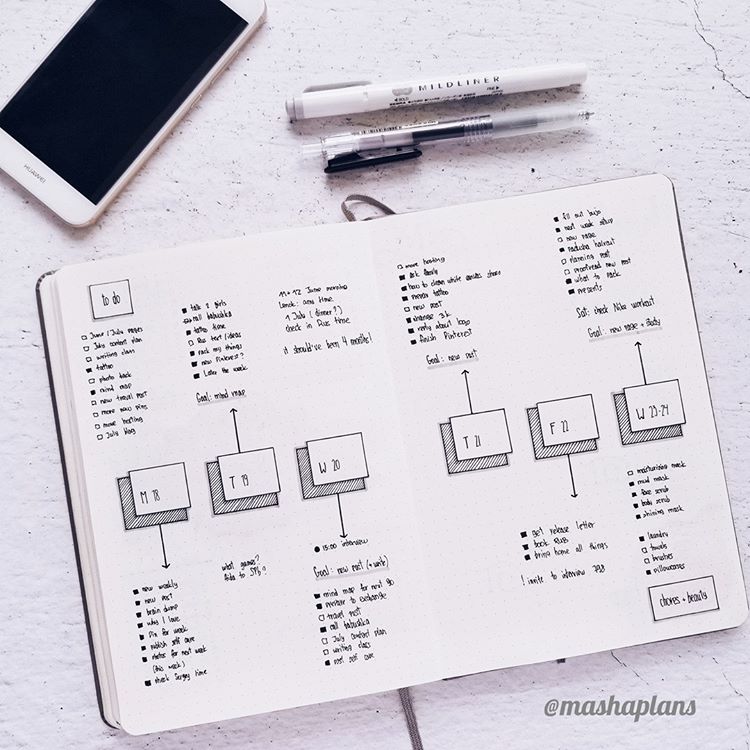 HUAWEI
MILDLINER
to do
June / July pages
July content plan
writing class
tattoo
photo hack
mind map
new travel post
more new pins
more hosting
July blog
talk 2 girls
call babushka
tattoo time
Rus text / ideas
pack my things
new Pinterest?
Later the week
Goal: mind map
11 + 12 June morning
lunch: any time
1 July (dinner?)
check in Rus time
it should've been 4 months!
more hosting
ask Family
how to clean white shoes
tattoo
new post
3k.
reply about logo
finish Pinterest
Goal: new post
fill out bujo
next week setup
new page
haircut
planning post
proofread new post
what to pack
presents
Sat: check Nika workout
Goal: new page + Study
M 18
T 19
W 20
T 21
F 22
W 23-24
new weekly
new post
brain dump
why I love
Pin for week
publish self care
photos for next week
(this week)
check Sergey time
what games?
13:00 interview
Goal: new post (+ write)
mind map for next go
prepare to exchange
travel post
call babushka
July content plan
writing class
post self care
get release letter
book
bring home all things
! invite to interview
moisturizing mask
mud mask
face scrub
body scrub
shining mask
laundry
towels
brushes
pillowcases
chores + beauty
@mashaplans